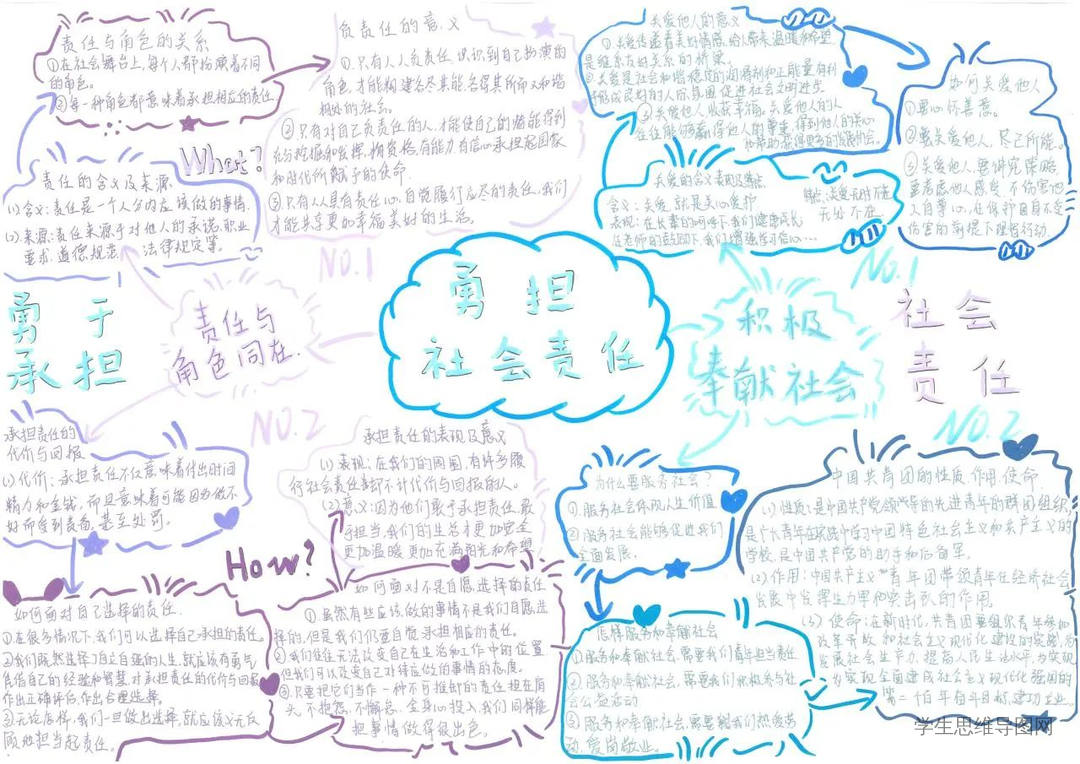 责任与角色的关系
①在社会舞台上,每个人都扮演着不同
的角色。
②每一种角色都意味着承担相应的责任
负责任的意义
①只有人人负责任,识到自己扮演的
角色,才能构建各尽其能、各得其所而又和谐
相处的社会。
②只有对自己负责任的人,才能使自己的潜能得到
充分挖掘和发挥,拥资格、有能力有信心承担起国家
和时代所赋予的使命.
③只有人人具有责任心,自觉履行应尽的责任,我们
才能共享更加幸福美好的生活。
What?
责任的含义及来源
(1)含义:责任是一个人分内应该做的事情.
(2)来源:责任来源于对他人的承诺、职业
要求、道德规范、法律规定等。
NO.1
关爱他人的意义
①关爱传递着美好情感,给人带来温暖和希望
是维系友好关系的桥梁。
②关爱是社会和谐稳定的润滑剂和正能量,有利
于形成良好的人际氛围,促进社会文明进步
③关爱他人,收获幸福。关爱他人的人
往往能够赢得他人的尊重,得到他人的关心
和帮助,获得更多的发展机会。
如何关爱他人
①要心怀善意。
②要关爱他人,尽己所能。
③关爱他人,要讲究策略
要考虑他人感受,不伤害他
人自尊心,在保护自身不受
伤害的前提下理智行动.
关爱的含义表现及特点
含义:关爱就是关心爱护
特点:关爱无时不在
无处不在
表现:在长辈的呵呼下,我们健康成长
在老师的鼓励下,我们增强学习信心…
NO.1
勇于
承担
责任与
角色同在.
勇担
社会责任
积极
奉献社会
社会
责任
NO.2
NO.2
承担责任的
代价与回报
(1)代价:承担责任不仅意味着付出时间
精力和金钱,而且意味着可能因为做不
好而受到责备,甚至处罚。
承担责任的表现及意义
(1)表现:在我们的周围,有许多履
行社会责任却不计代价与回报的人。
(2)意义:因为他们敢于承担责任,敢
于担当,我们的生活才更加安全
更加温暖,更加充满阳光和希望.
How?
如何面对自己选择的责任
①在很多情况下,我们可以选择自己承担的责任。
②我们既然选择了自立自强的人生,就应该有勇气
凭借自己的经验和智慧,对承担责任的代价与回报
作出正确评估,作出合理选择。
③无论怎样,我们一旦做出选择,就应该义无反
顾地担当起责任。
如何面对不是自愿选择的责任
①虽然有些应该做的事情不是我们自愿选
择的,但是我们仍要自觉承担相应的责任。
②我们往往无法改变自己在生活和工作中的位置
但我们可以改变自己对待应做的事情的态度.
③只要把它们当作一种不可推卸的责任担在肩
头,不抱怨、不懈怠、全身心投入,我们同样能
把事情做得很出色。
为什么要服务社会?
①服务社会体现人生价值
②服务社会能够促进我们
全面发展.
怎样服务和奉献社会
①服务和奉献社会,需要我们青年担当责任
②服务和奉献社会,需要我们积极参与社
会公益活动
③服务和奉献社会,需要我们热爱劳
动,爱岗敬业。
中国共青团的性质、作用、使命.
(1)性质:是中国共产党领导的先进青年的群团组织,
是广大青年在实践中学习中国特色社会主义和共产主义的
学校,是中国共产党的助手和后备军。
(2)作用:中国共产主义青年团带领青年在经济社会
发展中发挥生力军和突击队的作用.
(3)使命:在新时代,共青团要组织青年参加
改革开放和社会主义现代化建设的实践,为
发展社会生产力,提高人民生活水平,为实现
为实现全面建成社会主义现代化强国的
第二个百年奋斗目标,建功立业.
学生思维导图网